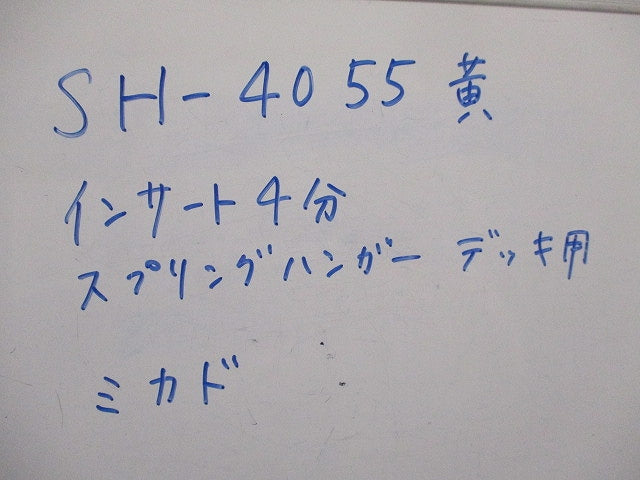 SH-4055 黄
インサート4分
スプリングハンガー デッキ用
ミカド